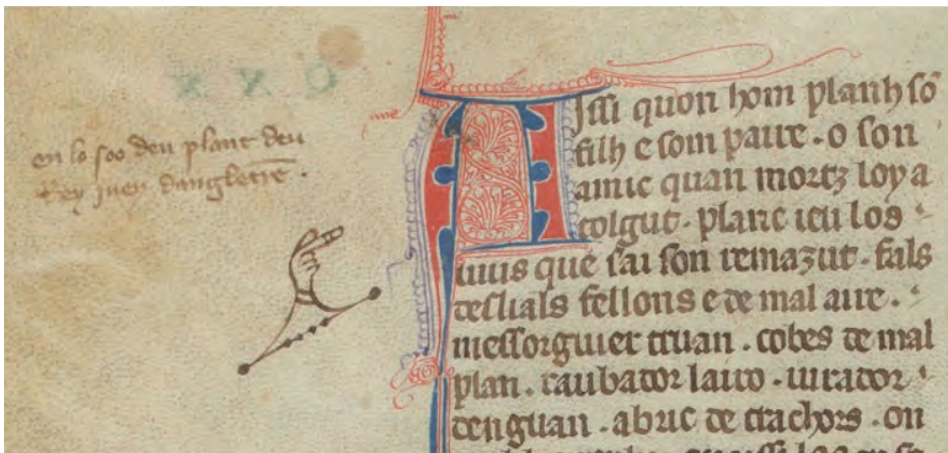 en lo soo deu plant deu
Rey jueu dangleterre.
Aissi quon hom planh so
filh e som paire . o son
amic quan mortz loy a
tolgut . planc ieu los
uius que sai son remazut . fals
deslials fellons e de mal aire .
messorguier truan . cobes de mal
plan . raubador lairo . iurador
denguan . abric de trachors . on